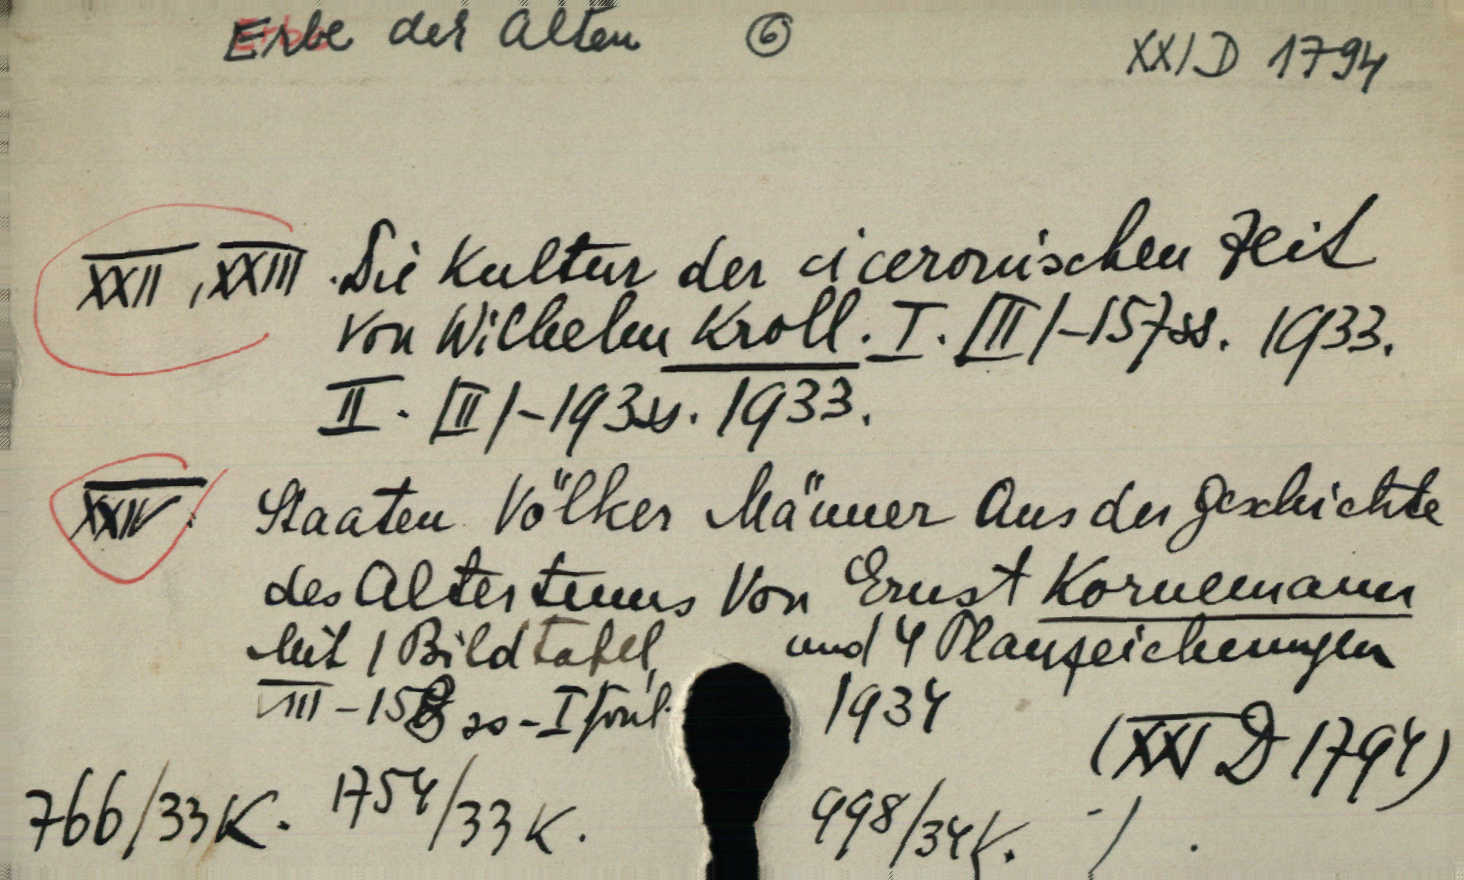 Erbe der Alten 6 XXI D 1794
XXII, XXIII. Die Kultur der ciceronischen Zeit
von Wilhelm Kroll. I. [III]-157 ss. 1933.
II. [II]-193 ss. 1933.
XXIV. Staaten Völker Männer Aus der Geschichte
des Altertums Von Ernst Kornemann
Mit 1 Bildtafel, und 4 Planzeichnungen
VIII-158 ss - I 1934
(XXI D 1794)
766/33 K. 1754/33 K. 998/34 K.